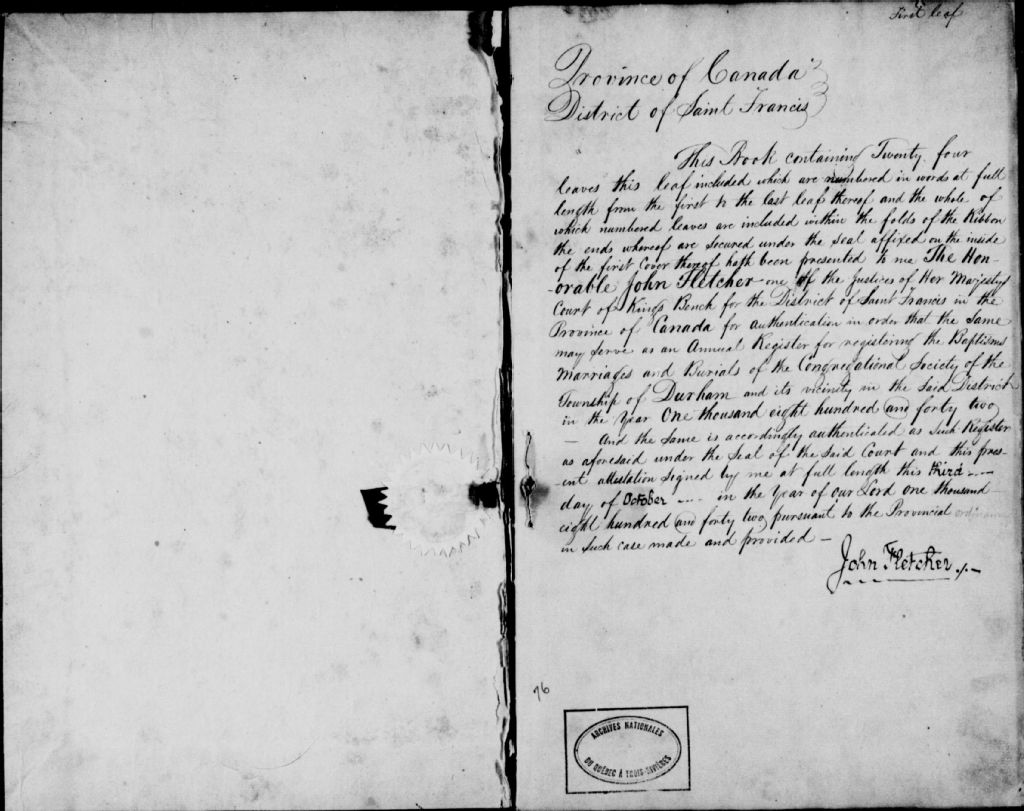 First leaf
Province of Canada
District of Saint Francis
This Book containing Twenty four
leaves this leaf included which are numbered in words at full
length from the first to the last leaf thereof and the whole of
which numbered leaves are included within the folds of the Ribbon
the ends whereof are secured under the seal affixed on the inside
of the first Cover thereof hath been presented to me The Hon-
-orable John Fletcher one of the Justices of Her Majesty's
Court of Kings Bench for the District of Saint Francis in the
Province of Canada for authentication in order that the same
may serve as an Annual Register for registering the Baptisms
Marriages and Burials of the Congregational Society of the
Township of Durham and its vicinity in the said District
in the Year One thousand eight hundred and forty two
— And the same is accordingly authenticated as such Register
as aforesaid under the Seal of the said Court and this pres-
-ent attestation signed by me at full length this third
day of October in the Year of our Lord one thousand
eight hundred and forty two pursuant to the Provincial ordinance
in such case made and provided —
John Fletcher
76
ARCHIVES NATIONALES
DU QUÉBEC À TROIS-RIVIÈRES